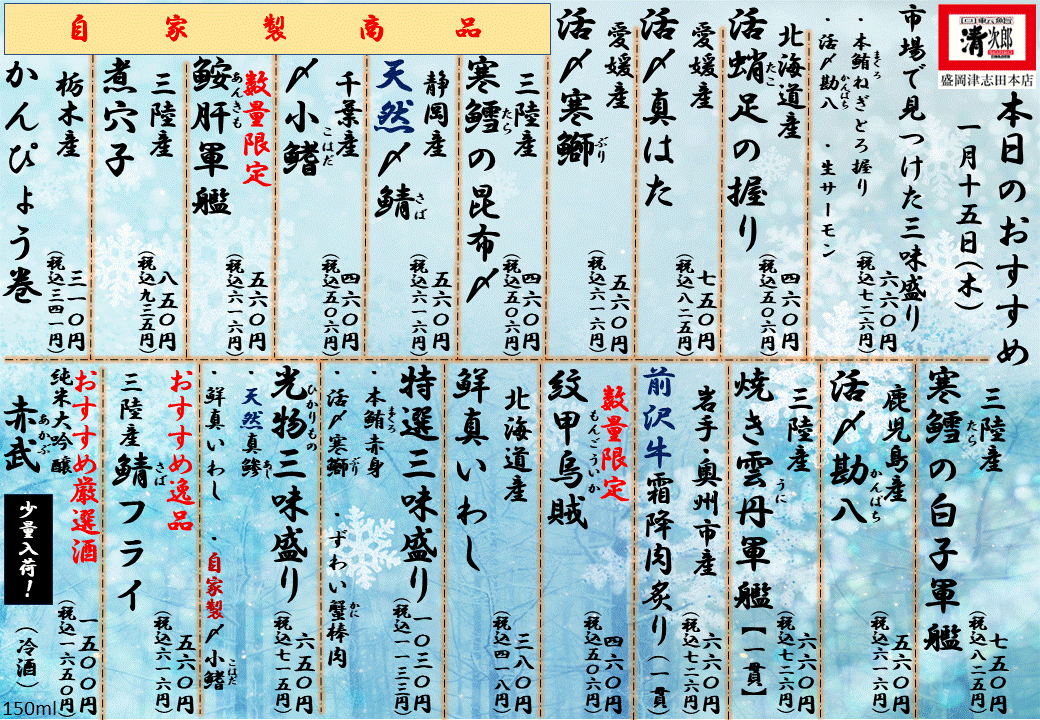 回転鮨
清次郎
盛岡津志田本店
本日のおすすめ
一月十五日(木)
市場で見つけた三味盛り
・本鮪ねぎとろ握り
まぐろ
・活〆勘八
かんぱち
・生サーモン
六六〇円
(税込七二六円)
北海道産
活蛸足の握り
たこ
四六〇円
(税込五〇六円)
愛媛産
活〆真はた
七五〇円
(税込八二五円)
愛媛産
活〆寒鰤
ぶり
五六〇円
(税込六一六円)
自家製商品
三陸産
寒鱈の昆布〆
たら
四六〇円
(税込五〇六円)
静岡産
天然〆鯖
さば
五六〇円
(税込六一六円)
千葉産
〆小鰭
こはだ
四六〇円
(税込五〇六円)
数量限定
鮟肝軍艦
あんきも
五六〇円
(税込六一六円)
三陸産
煮穴子
八五〇円
(税込九三五円)
栃木産
かんぴょう巻
三一〇円
(税込三四一円)
三陸産
寒鱈の白子軍艦
たら
七五〇円
(税込八二五円)
鹿児島産
活〆勘八
かんぱち
五六〇円
(税込六一六円)
三陸産
焼き雲丹軍艦【一貫】
うに
六六〇円
(税込七二六円)
岩手・奥州市産
前沢牛霜降肉炙り(一貫)
六六〇円
(税込七二六円)
数量限定
紋甲烏賊
もんごういか
四六〇円
(税込五〇六円)
北海道産
鮮真いわし
三八〇円
(税込四一八円)
特選三味盛り
・本鮪赤身
まぐろ
・活〆寒鰤
ぶり
・ずわい蟹棒肉
かに
一〇三〇円
(税込一一三三円)
光物三味盛り
ひかりもの
・天然真鯵
あじ
・鮮真いわし
・自家製〆小鰭
こはだ
六五〇円
(税込七一五円)
おすすめ逸品
三陸産鯖フライ
さば
五六〇円
(税込六一六円)
おすすめ厳選酒
純米大吟醸
赤武
あかぶ
少量入荷！
(冷酒)
一五〇〇円
(税込一六五〇円)
150ml